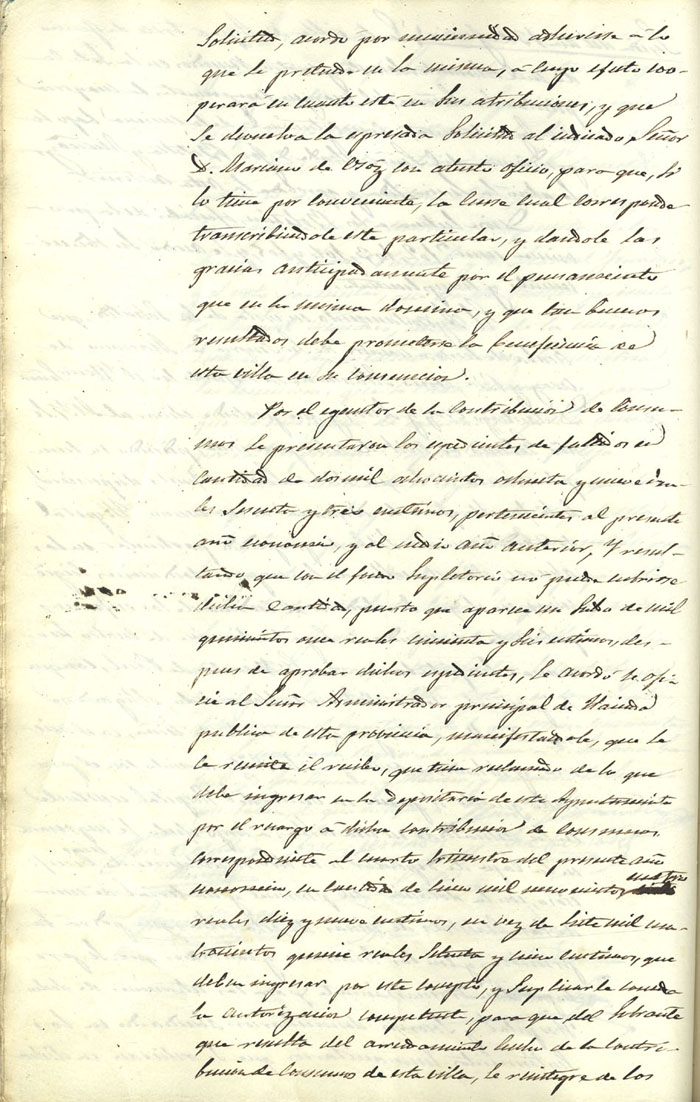 Solicitud, acordó por unanimidad adherirse á lo
que se pretende en la misma, á cuyo efecto coo-
perará en cuanto esté en sus atribuciones, y que
se devuelva la espresada Solicitud al indicado Señor
D. Mariano de con atento oficio, para que, si
lo tiene por conveniente, la curse cual corresponde
transcribiendole este particular, y dandole las
gracias anticipadamente por el pensamiento
que en la misma domina, y que tan buenos
resultados debe prometerse la beneficencia de
esta villa en su concepcion.
Por el egecutor de la Contribucion de Consu-
mos se presentaron los espedientes de fallidos en
cantidad de dos mil ochocientos ochenta y nueve rea-
les sesenta y tres centimos, pertenecientes al presente
año economico, y al medio año anterior, Y resul-
tando que con el fondo Supletorio no puede cubrirse
dicha Cantidad, puesto que aparece un de mil
quinientos once reales cincuenta y seis centimos, des-
pues de aprobar dichos espedientes, se acordó se ofi-
cie al Señor Administrador principal de Hacienda
publica de esta provincia, manifestandole, que se
le remita el recibo, que tiene reclamado de lo que
debe ingresar en la Depositaria de este Ayuntamiento
por el recargo á dicha contribucion de consumos
correspondiente al cuarto trimestre del presente año
economico, en cantidad de cinco mil novecientos cuatro
reales diez y nueve centimos, en vez de siete mil cua-
trocientos quince reales setenta y cinco centimos, que
debia ingresar por este concepto, y suplicarle conceda
la autorizacion competente, para que del sobrante
que resulta del arrendamiento hecho de la contri-
bucion de consumos de esta villa, se reintegre de los